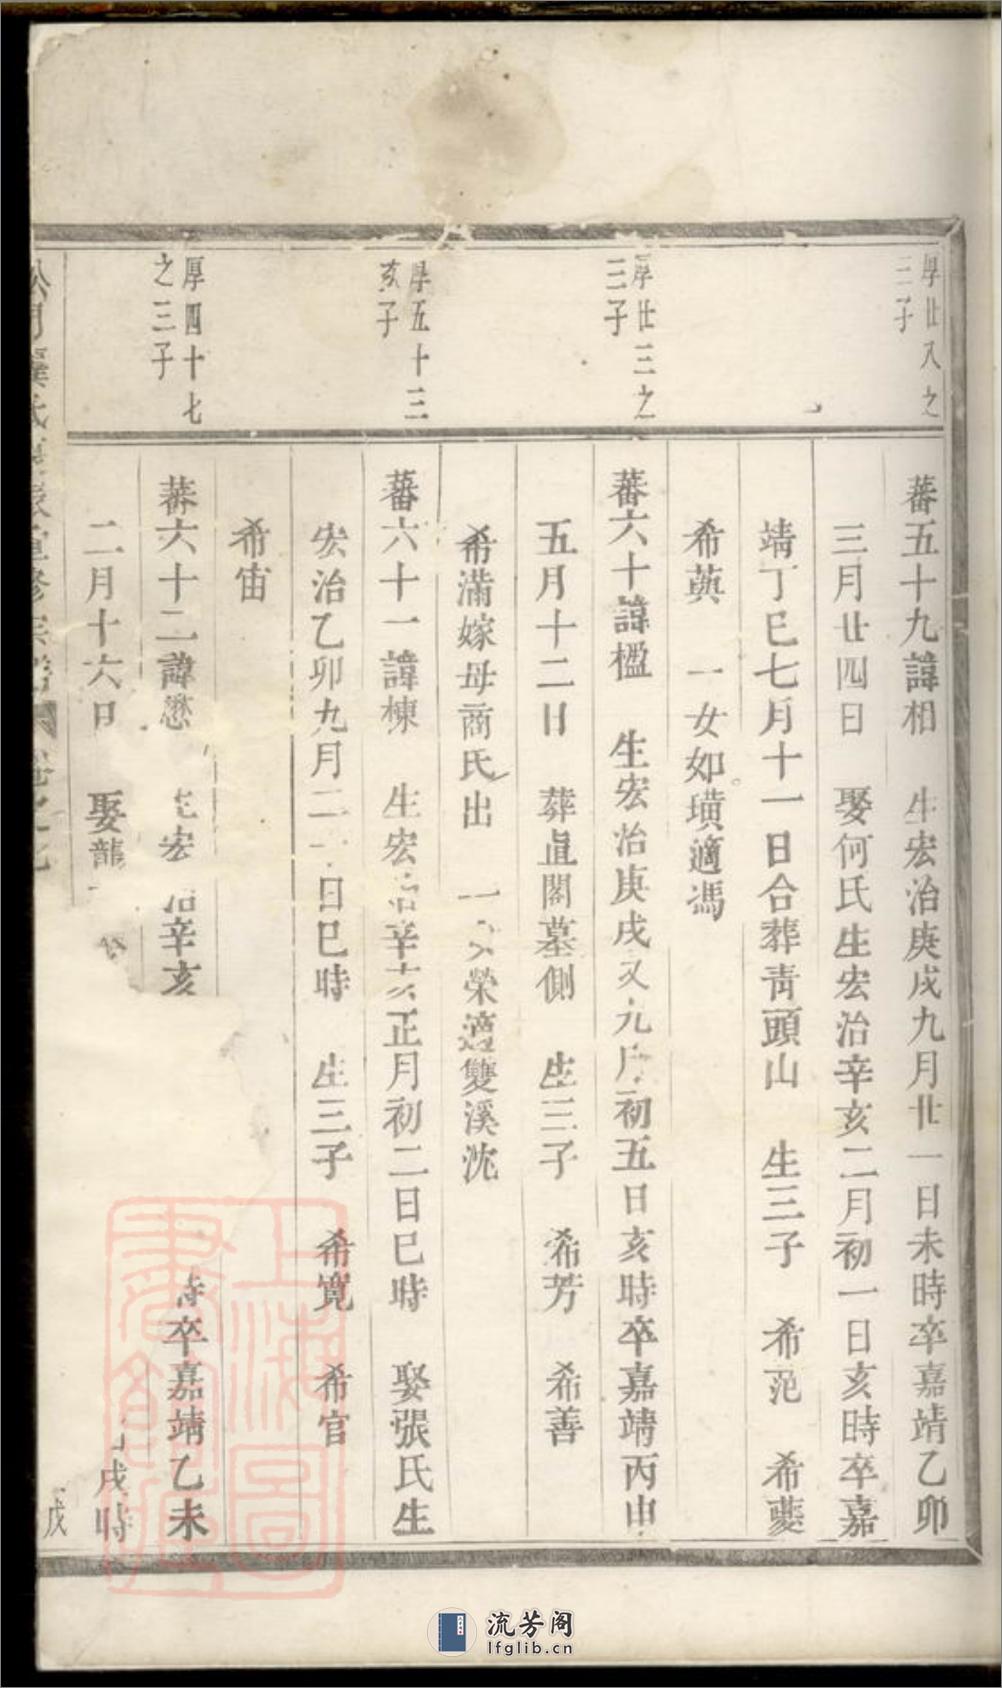 厚廿八之
三子
厚廿三之
三子
厚五十三
亥子
厚四十七
之三子
蕃五十九諱相 生宏治庚戌九月廿一日未時卒嘉靖乙卯
三月廿四日 娶何氏生宏治辛亥二月初一日亥時卒嘉
靖丁巳七月十一日合葬青頭山 生三子 希范 希夔
希英 一女如璜適馮
蕃六十諱楹 生宏治庚戌又九月初五日亥時卒嘉靖丙申
五月十二日 葬直閣墓側 生三子 希芳 希善
希滿嫁母商氏出 一女榮適雙溪沈
蕃六十一諱棟 生宏治辛亥正月初二日巳時 娶張氏生
宏治乙卯九月二日巳時 生三子 希寬 希官
希宙
蕃六十二諱懋 生宏治辛亥 時卒嘉靖乙未
二月十六日 娶龍 戌時
氏 重修宗譜 卷之七
上海圖書館藏
流芳阁
lfglib.cn